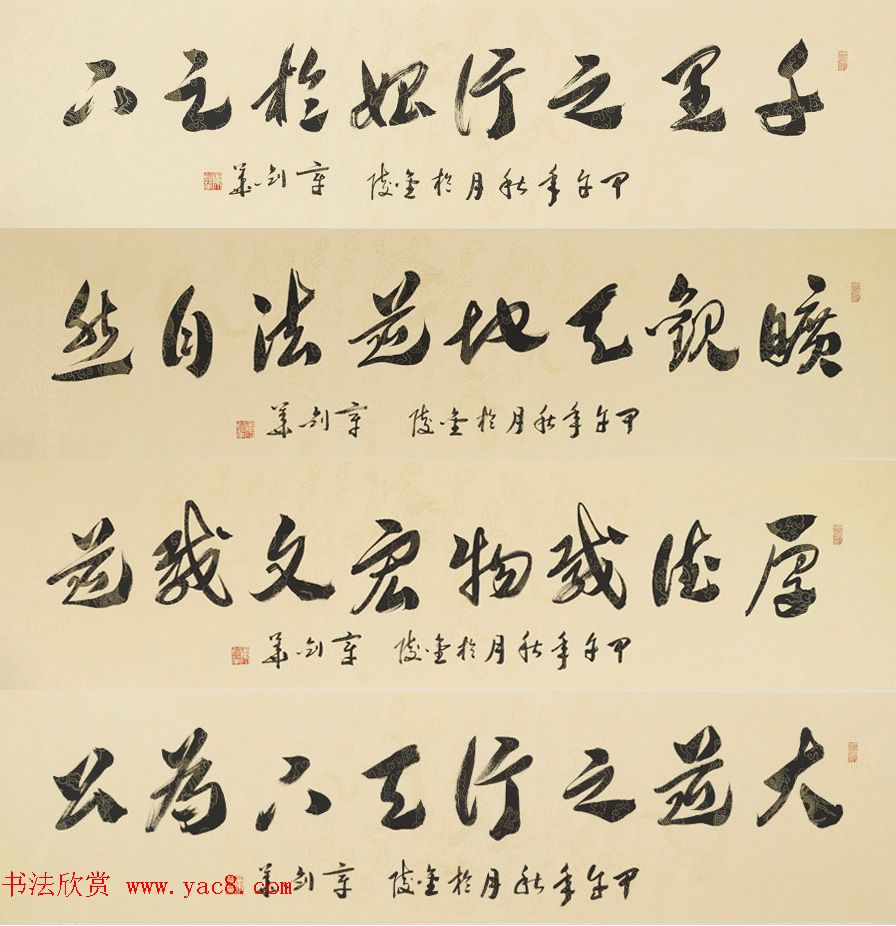 千里之行始於足下
甲午年秋月於金陵 章剑華
曠觀天地道法自然
甲午年秋月於金陵 章剑華
厚德載物宏文載道
甲午年秋月於金陵 章剑華
大道之行天下為公
甲午年秋月於金陵 章剑華
书法欣赏 www.yac8.com